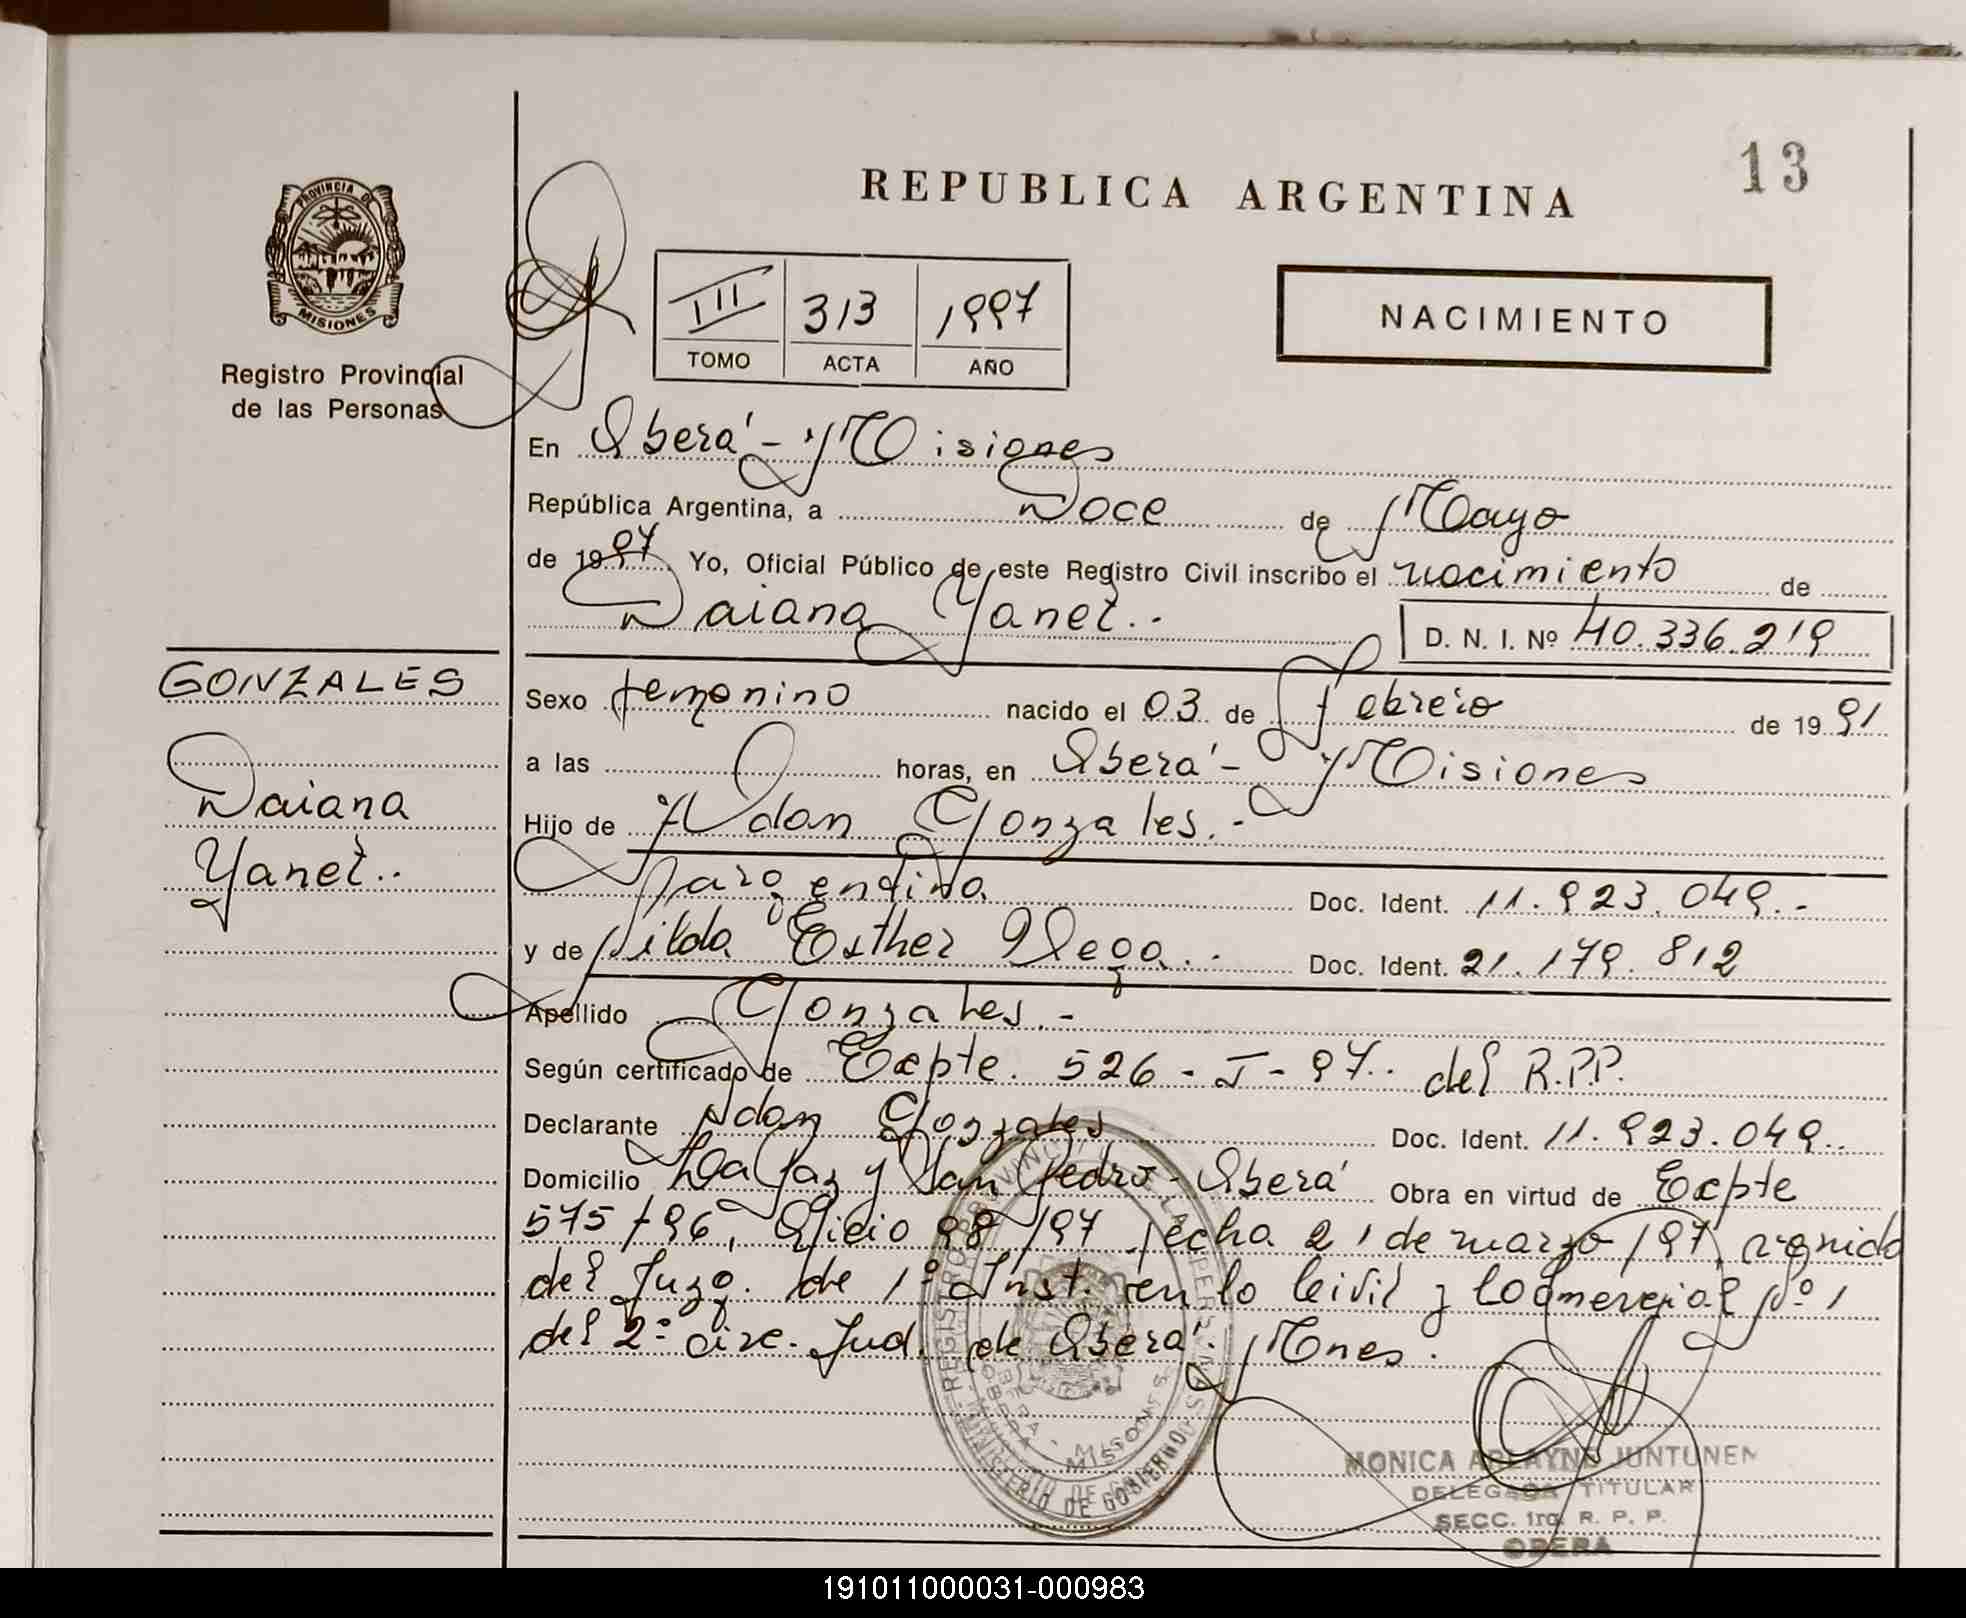 13
REPUBLICA ARGENTINA
PROVINCIA DE
MISIONES
Registro Provincial
de las Personas
III 313 1997
TOMO ACTA AÑO
NACIMIENTO
En Oberá - Misiones
República Argentina, a Doce de Mayo
de 1997 Yo, Oficial Público de este Registro Civil inscribo el nacimiento de
Daiana Yanet.. D. N. I. Nº 40.336.219
GONZALES
Daiana
Yanet..
Sexo femenino nacido el 03 de febrero de 1991
a las horas, en Oberá - Misiones
Hijo de Adan Gonzales.-
argentino Doc. Ident. 11.923.049.-
y de Hilda Esther Vega.. Doc. Ident. 21.179.812
Apellido Gonzales.-
Según certificado de Expte. 526 - I - 97.. del R.P.P.
Declarante Adan Gonzales Doc. Ident. 11.923.049..
Domicilio La Paz y San Pedro - Oberá Obra en virtud de Expte
575/96, Oficio 98/97 fecha 21 de marzo/97, venido
del Juzg. de 1º Inst. en lo Civil y Comercial Nº 1
del 2º Circ. Jud. de Oberá. Mnes.
REGISTRO PROVINCIAL DE LAS PERSONAS
MINISTERIO DE GOBIERNO
OBERA - MISIONES
MONICA JUNTUNEN
DELEGADA TITULAR
SECC. 1ra. R. P. P.
OBERA
191011000031-000983